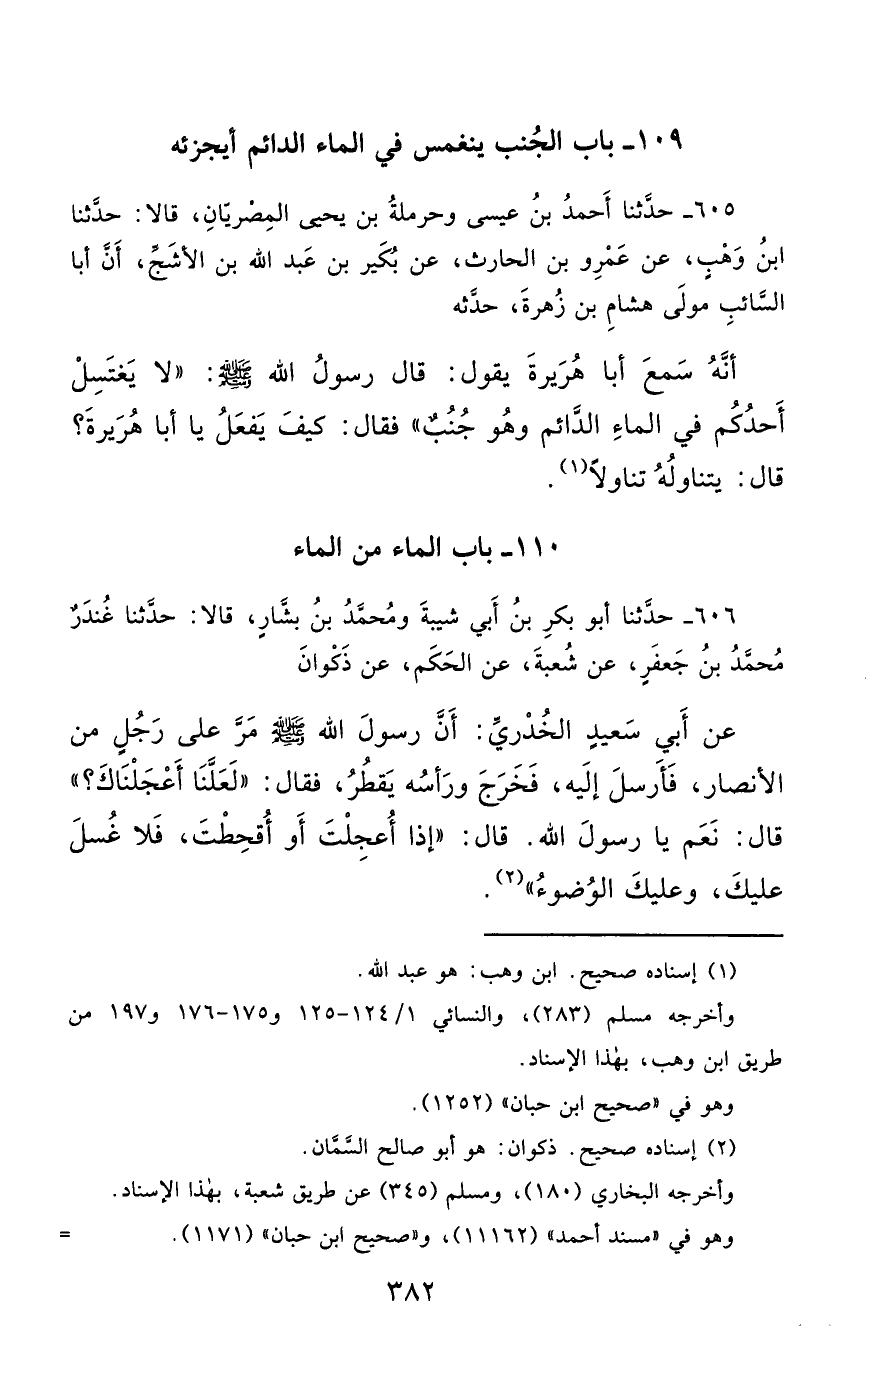 ١٠٩ـ باب الجُنب ينغمس في الماء الدائم أيجزئه
٦٠٥ـ حدَّثنا أَحمدُ بنُ عيسى وحرملةُ بن يحيى المِصْريّانِ، قالا: حدَّثنا
ابنُ وَهْبٍ، عن عَمْرِو بن الحارث، عن بُكَير بن عَبد الله بن الأشَجِّ، أَنَّ أبا
السَّائبِ مولَى هشامِ بن زُهرةَ، حدَّثه
أنَّهُ سَمعَ أبا هُرَيرةَ يقول: قال رسولُ الله ﷺ: «لا يَغتَسِلْ
أَحدُكُم في الماءِ الدَّائم وهُو جُنُبٌ» فقال: كيفَ يَفعَلُ يا أبا هُرَيرةَ؟
قال: يتناولُهُ تناولاً(١).
١١٠ـ باب الماء من الماء
٦٠٦ـ حدَّثنا أبو بكرِ بنُ أَبي شيبةَ ومُحمَّدُ بنُ بشَّارٍ، قالا: حدَّثنا غُندَرٌ
مُحمَّدُ بنُ جَعفَرٍ، عن شُعبةَ، عن الحَكَم، عن ذَكْوانَ
عن أَبي سَعيدٍ الخُدْريِّ: أَنَّ رسولَ الله ﷺ مَرَّ على رَجُلٍ من
الأنصار، فَأَرسلَ إلَيه، فَخَرَجَ ورَأسُه يَقطُرُ، فقال: «لَعَلَّنَا أَعْجَلْنَاكَ؟»
قال: نَعَم يا رسولَ الله. قال: «إذا أُعجِلْتَ أَو أُقحِطْتَ، فَلا غُسلَ
عليكَ، وعليكَ الوُضوءُ»(٢).
(١) إسناده صحيح. ابن وهب: هو عبد الله.
وأخرجه مسلم (٢٨٣)، والنسائي ١/ ١٢٤-١٢٥ و١٧٥-١٧٦ و١٩٧ من
طريق ابن وهب، بهٰذا الإسناد.
وهو في «صحيح ابن حبان» (١٢٥٢).
(٢) إسناده صحيح. ذكوان: هو أبو صالح السَّمَّان.
وأخرجه البخاري (١٨٠)، ومسلم (٣٤٥) عن طريق شعبة، بهٰذا الإسناد.
وهو في «مسند أحمد» (١١١٦٢)، و«صحيح ابن حبان» (١١٧١). =
٣٨٢